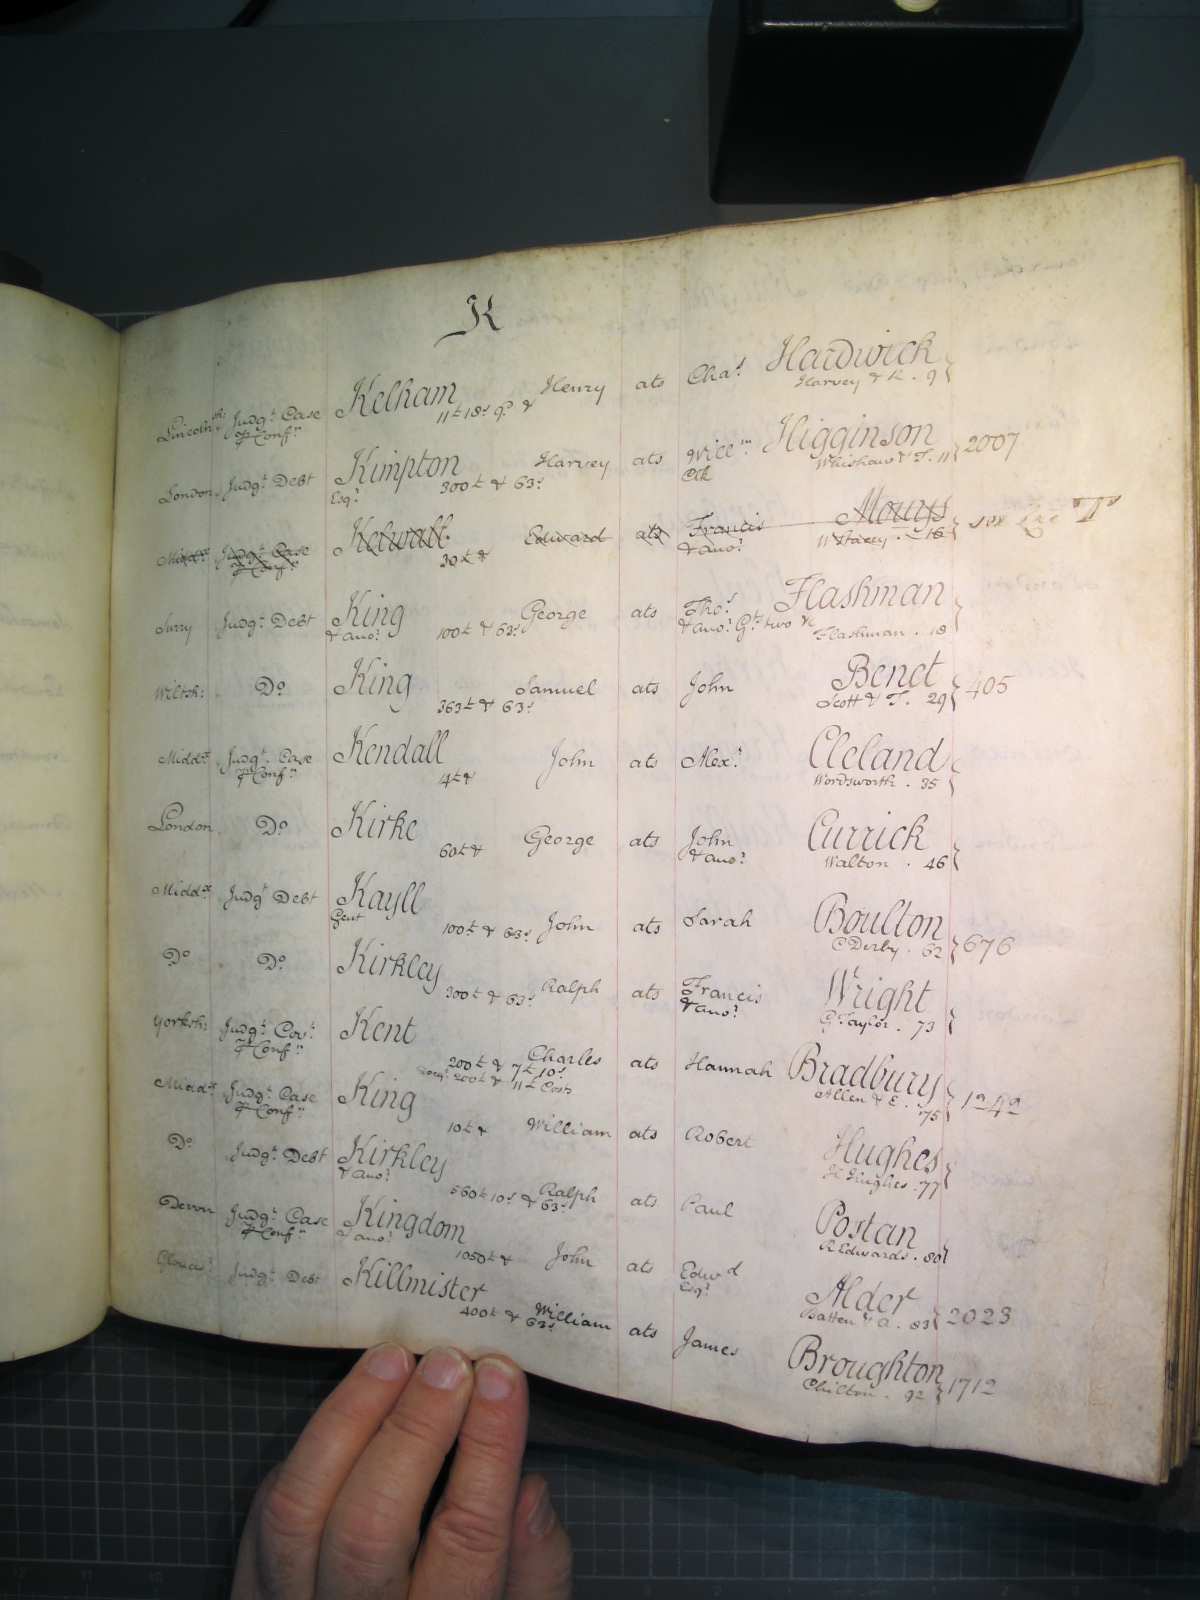 K
Lincolnsh: Judgt. Case Kelham Henry ats Chas. Hardwick
p Confn. 11£ 18s 9d & Harvey & R. 9
London Judgt. Debt Kimpton Harvey ats Higginson 2007
Esqr. 300£ & 63s Clk Whishaw & T. 11
Middx. Judgt. Case Edward ats Francis see
p Confn. 30£ & & anor. W Stacey. 16
Surry Judgt. Debt King George ats Thos. Flashman
& anor. 100£ & 63s & anor. Gts. two &c Flashman. 18
Wiltsh: Do. King Samuel ats John Benet 405
363£ & 63s Scott & T. 29
Middx. Judgt. Case Kendall John ats Alexr. Cleland
p Confn. 14£ & Wordsworth. 35
London Do. Kirke George ats John Currick
60£ & & anor. Walton. 46
Middx. Judgt. Debt Kayll John ats Sarah Boulton 676
Gent 100£ & 63s C Derby. 62
Do. Do. Kirkley Ralph ats Francis Wright
300£ & 63s & anor. G Taylor. 73
Yorksh: Judgt. Covt. Kent Charles ats Hannah Bradbury
p Confn. 200£ & 7£ 10s Allen & E. 75
200£ & 11£ Costs
Middx. Judgt. Case King William ats Robert Hughes
p Confn. 10£ & H Hughes. 77
Do. Judgt. Debt Kirkley Ralph ats Paul Postan
& anor. 560£ 10s & 63s R Edwards. 80
Devon Judgt. Case Kingdom John ats Edwd. Alder 2023
p Confn. & anor. 1050£ & Esqr. Batten & A. 83
Gloucr. Judgt. Debt Killmister William ats James Broughton 1712
400£ & 63s Chilton. 92